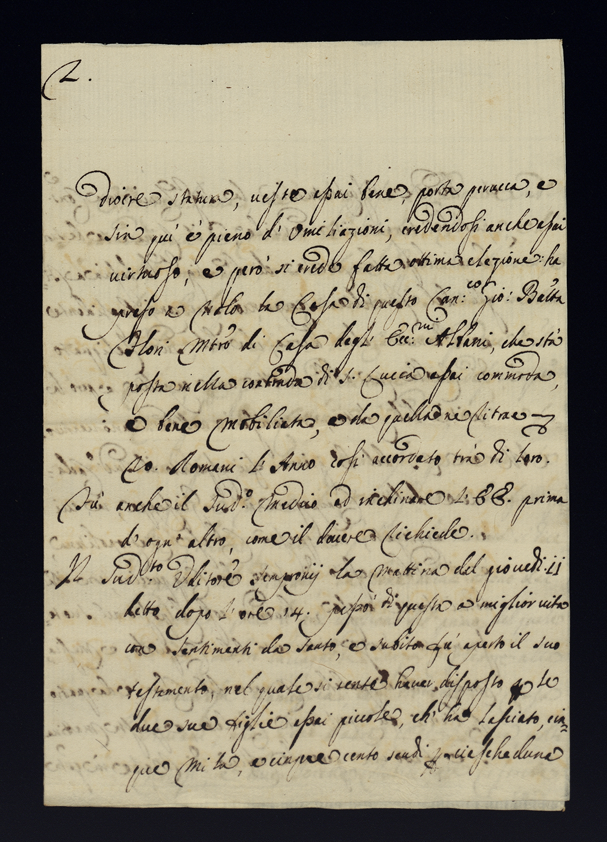 2.
diocre statura, veste assai bene, porta perucca, e
sin qui è pieno d' Umiliazioni, credendosi anche assai
virtuoso, e però si crede fatta ottima elezione: ha
preso a Nolo la Casa di questo Can:co Gio: Batta
Mtro di Casa degl' Ecc:mi Albani, che stà
posta nella contrada di S. Lucia assai commoda,
e bene Mobiliata, e da quella ne ritrae
20. Romani l' Anno così accordato trà di loro.
Fù anche il Sud.o Medico ad inchinare L' EE. prima
d' ogn' altro, come il dovere richiede.
Il Sud.to Uditore Sempronij la mattina del giovedì 11
detto dopo l' ore 14. passò di questa a miglior vita
con sentimenti da Santo, e subito fù aperto il suo
testamento, nel quale si sente haver disposto p le
due sue figlie assai piccole, ch' ha lasciato, cin=
que Mila, e cinque cento scudi p ciascheduna